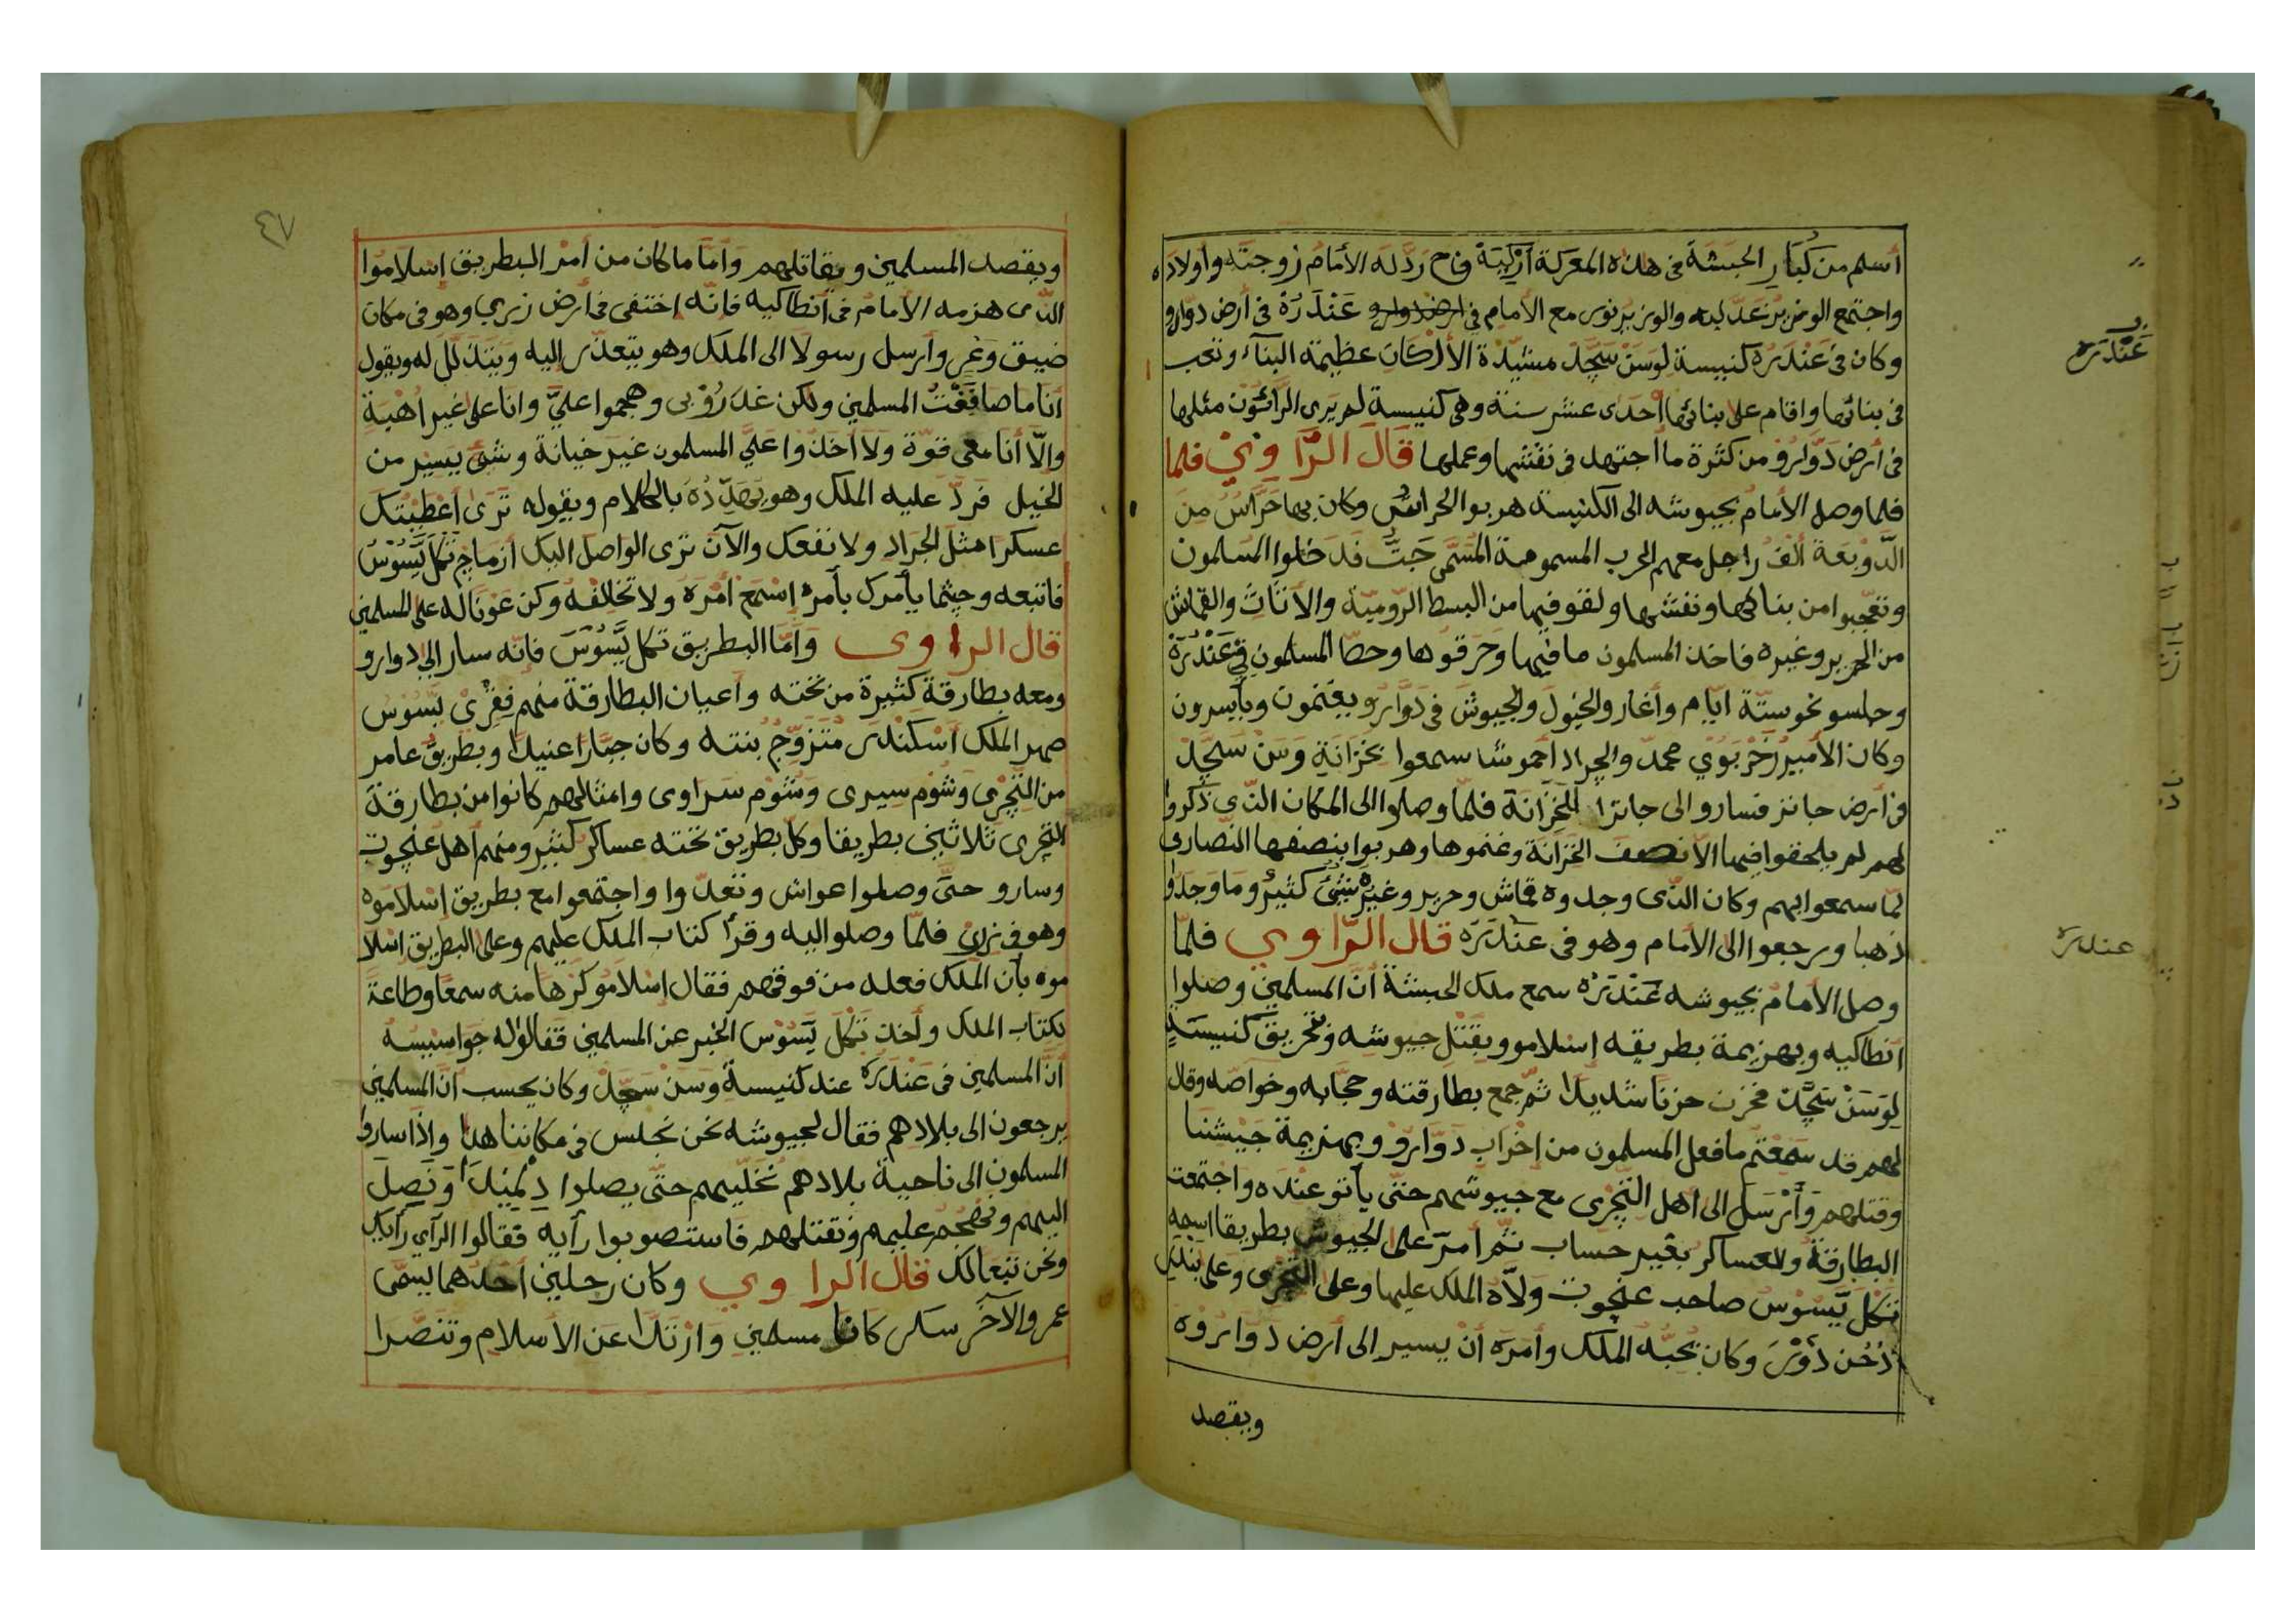 أسلم من كبار الحبشة في هذه المعركة أزكية وح ردّ له الأمام زوجته وأولاده
واجتمع الوزير عدليه والوزير نور مع الأمام في ارض دوارو عَنْدَرَهْ في أرض دوارو
وكان في عندره كنيسة لوسن سجّد مشيّدة الأركان عظيمة البناء وتعب
في بنائها واقام على بنائها أحدى عشر سنة وهي كنيسة لم يرى الرّائون مثلها
في أرض دوّارو من كثرة ما اجتهد في نقشها وعملها قال الرّاوي فلما
فلما وصل الأمام بجيوشه الى الكنيسة هربوا الحراس وكان بها حرّاس من
الدّوبعة ألف راجل معهم الحرب المسمومة المسمّى جتّ فدخلوا المسلمون
وتعجبوا من بنائها ونقشها ولقو فيها من البسط الروميّة والأثاث والقماش
من الحرير وغيره فاخذ المسلمون ما فيها وحرقوها وحطّا المسلمون في عندره
وجلسو نحو ستّة ايّام وأغار والخيول والجيوش في دوّارو يغنمون ويأسرون
وكان الأمير زحربوي محمد والجراد أحموشا سمعوا بخزانة وسن سجّد
في أرض جانز فسارو الى جانزا الخزانة فلمّا وصلوا الى المكان الذي ذكروا
لهم لم يلحقوا فيها الا نصف الخزانة وغنموها وهربوا بنصفها النصارى
لمّا سمعوا بهم وكان الذي وجدوه قماش وحرير وغيره شئ كثير وما وجدوا
ذهبا ورجعوا الى الأمام وهو في عندره قال الرّاوي فلمّا
وصل الأمام بجيوشه عندره سمع ملك الحبشة أنّ المسلمين وصلوا
انطاكيه وبهزيمة بطريقه إسلامو وبقتل جيوشه وتحريق كنيسة
لوسن سجّد فحزن حزنا شديدا ثمّ جمع بطارقته وحجّابه وخواصّه وقال
لهم قد سمعتم ما فعل المسلمون من إخراب دوّارو وبهزيمة جيشنا
وقتلهم وأرسل الى أهل التجرى مع جيوشهم حتى يأتو عنده واجتمعت
البطارقة والعساكر بغير حساب ثمّ أمرّ على الجيوش بطريقا اسمه
تكل يسوس صاحب عنجوت ولاّه الملك عليها وعلى التجرى وعلى
دخن دور وكان يحبّه الملك وأمره أنْ يسير الى أرض دواروه
ويقصد
عَنْدَرَه
عندره
٤٧
ويقصد المسلمين ويقاتلهم وأمّا ما كان من أمر البطريق إسلاموا
الذى هزمه الأمام في أنطاكيه فانّه اختفى في أرض زبري وهو في مكان
ضيق وعر وأرسل رسولا الى الملك وهو يتعذّر إليه ويتذلّل له ويقول
أنا ما صاففت المسلمين ولكن غدرُو بى وهجموا عليّ وانا على غير أهبة
والّا أنا معى قوّة ولا أخذوا عليّ المسلمون غير خيانة وشئ يسير من
الخيل فردّ عليه الملك وهو يهدّده بالكلام ويقوله ترى أعطيتك
عسكرا مثل الجراد ولا نفعك والآن ترى الواصل اليك ازماج تكل يسوس
فاتبعه وحيثما يأمرك بأمره إسمع أمره ولا تخالفه وكن عونا له على المسلمين
قال الراوى وأمّا البطريق تكل يسوس فانّه سار الى دوارو
ومعه بطارقة كثيرة من تحته وأعيان البطارقة منهم فقرى يسوس
صهر الملك اسكندر متزوّج بنته وكان جبّارا عنيدا وبطريق عامر
من التجرى وشوم سيرى وشوم سراوى وامثالهم كانوا من بطارقة
التجرى ثلاثين بطريقا وكلّ بطريق تحته عساكر كثير ومنهم أهل عنجوت
وسارو حتّى وصلوا عواش وتعدّوا واجتمعوا مع بطريق إسلاموه
وهو في زبرى فلمّا وصلوا اليه وقرأ كتاب الملك عليهم وعلى البطريق اسلا
موه بأن الملك فعله من فوقهم فقال اسلامو كرها منه سمعا وطاعة
لكتاب الملك وأخذ تكل يسوس الخبر عن المسلمين فقالوله جواسيسه
أنّ المسلمين في عندره عند كنيسة وسن سجّد وكان يحسب أنّ المسلمين
يرجعون الى بلادهم فقال لجيوشه نحن نجلس في مكاننا هذا واذا ساروا
المسلمون الى ناحية بلادهم نخلّيهم حتّى يصلوا ونصل
اليهم ونهجم عليهم ونقتلهم فاستصوبوا رأيه فقالوا الرأي رأيك
ونحن تبعا لك قال الراوي وكان رجلين أحدهما يسمّى
عمر والآخر سكر كانا مسلمين وارتدّا عن الأسلام وتنصّرا